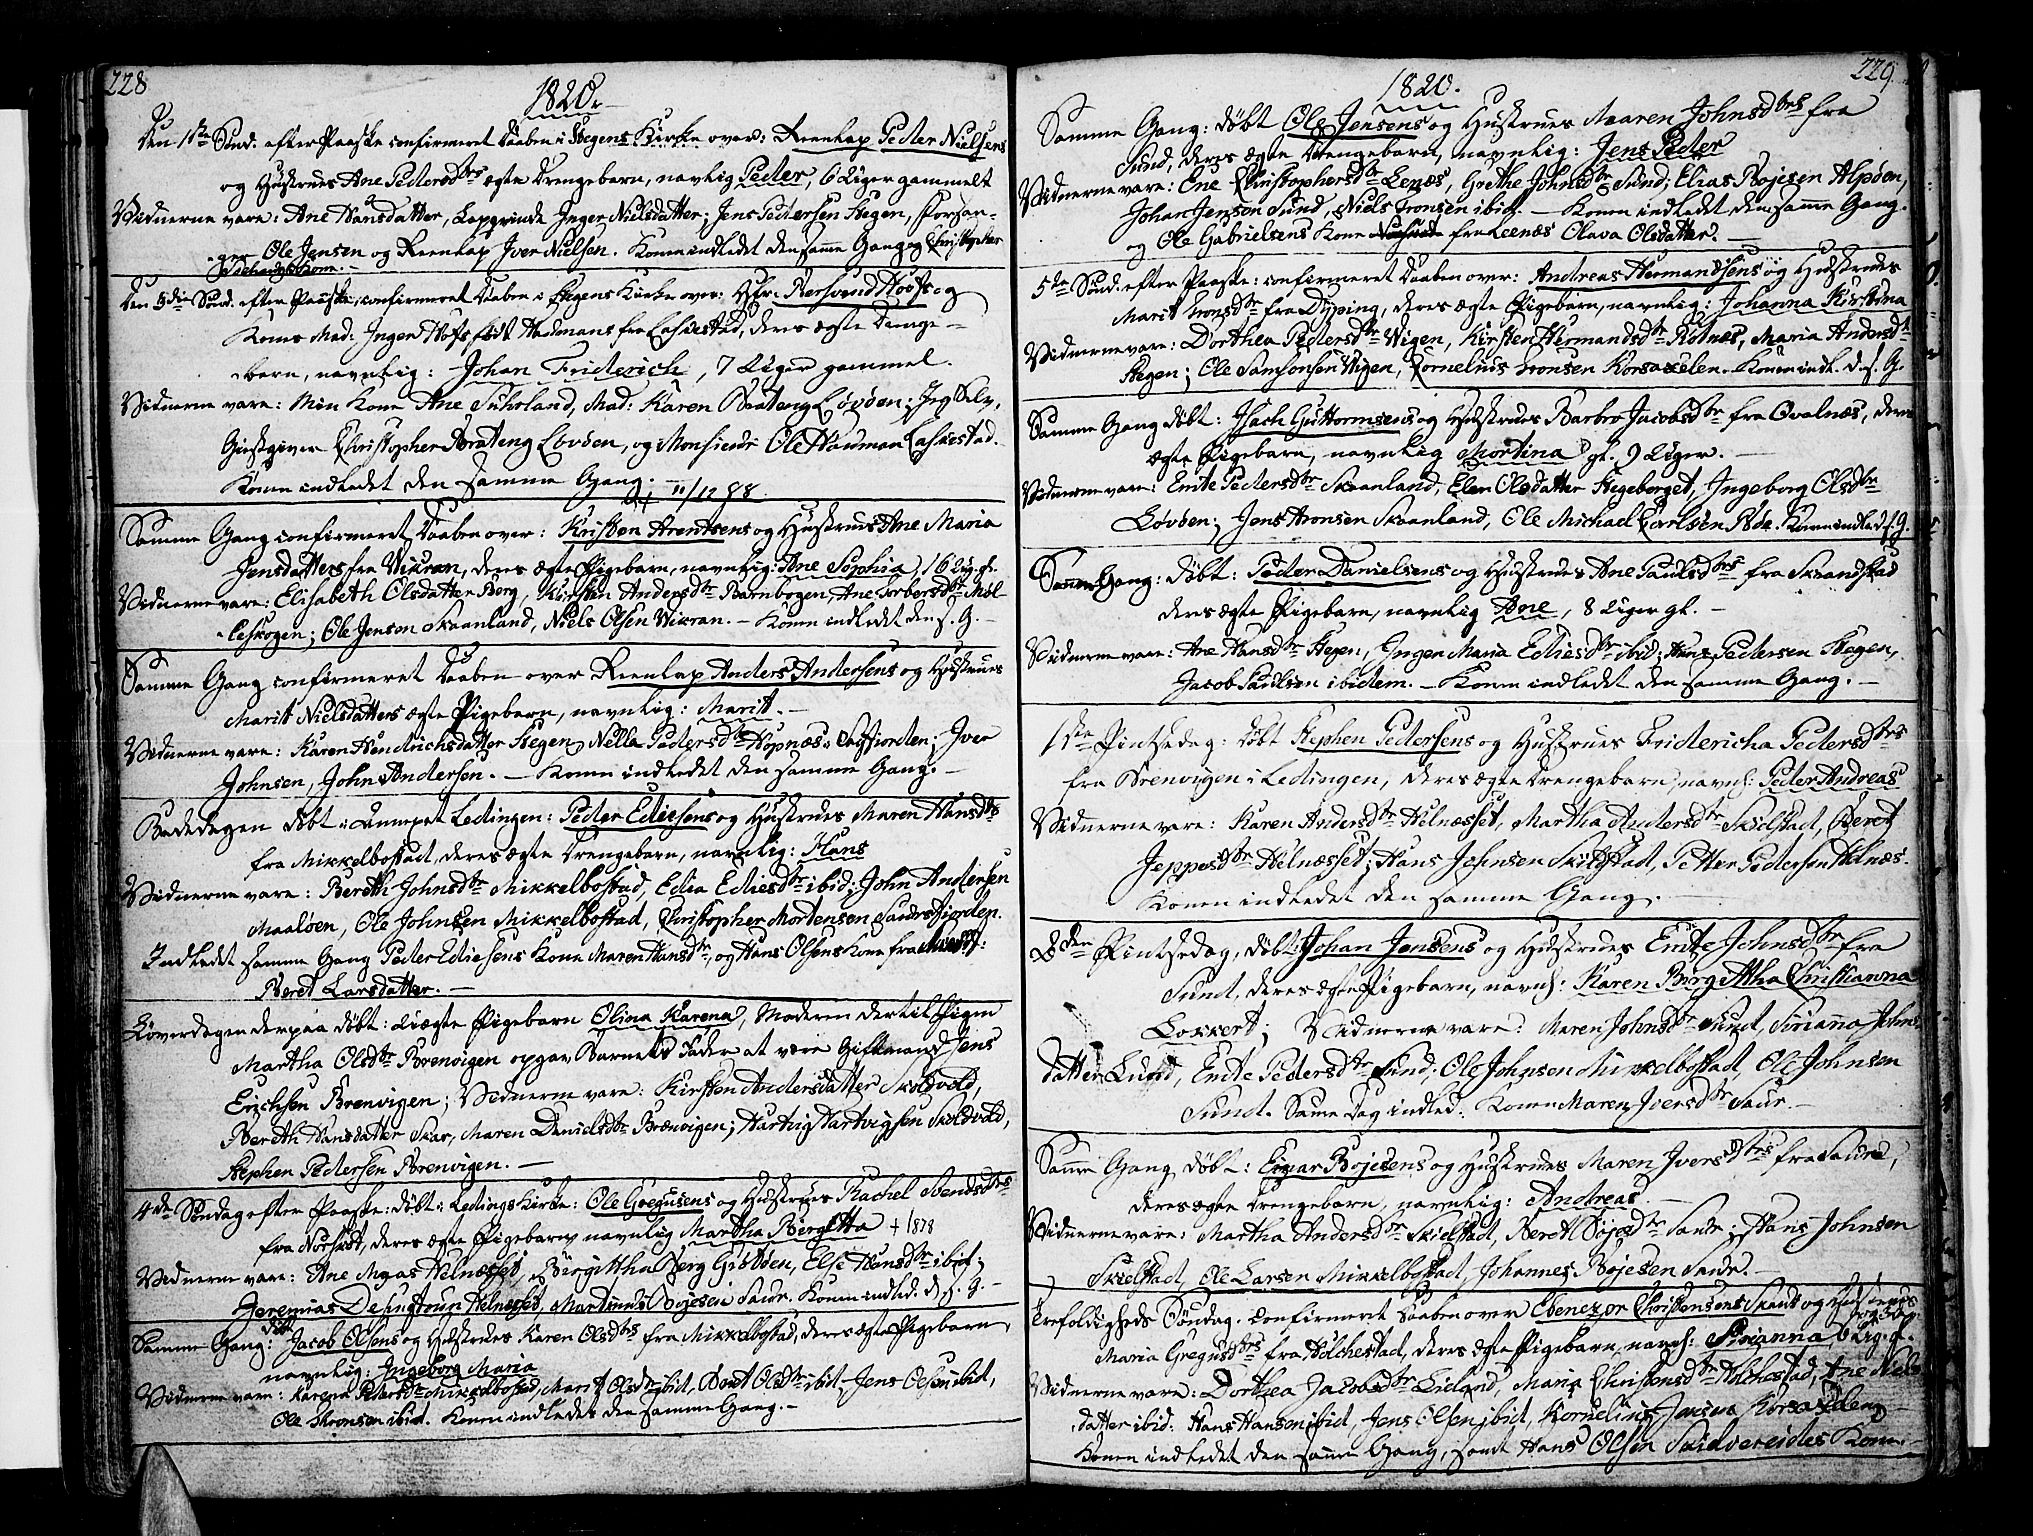 228
1820.
Den 1ste Sønd. efter Paaske confirmeret Daaben i Stegens Kirke over: Reenlap Peder Nielsens
og Hustrues Ane Pedersdtrs ægte Drengebarn, navnlig Peder, 6 Uger gammelt
Vidnerne vare: Ane Hansdatter, Lapqvinde Inger Nielsdatter; Jens Pedersen Stegen, Forsan-
ger Ole Jensen og Reenlap Iver Nielsen. Konen indledet den samme Gang og Christopher
Kone.
Den 3die Sønd. efter Paaske, confirmeret Daaben i Stegens Kirke over: Hr: Hofs og
Kones Mad: Inger Hofs, født Hadmans fra Laskestad, deres ægte Drenge-
barn, navnlig: Johan Friderich, 7 Uger gammel.
Vidnerne vare: Min Kone Ane Suhrland, Mad: Karen Brateng Løvøen; Jeg Selv,
Giestgiver Christopher Brateng Løvøen, og Monsieur Ole Hauman Laskestad.
Konen indledet den samme Gang. + 11/12 88
Samme Gang confirmeret Daaben over: Kristen Arentsens og Hustrues Ane Maria
Jensdatters fra Wikran, deres ægte Pigebarn, navnlig: Ane Sophia, 16 Ug. g.
Vidnerne vare: Elisabeth Olsdatter Berg, Kirsten Andersdtr Barnbogen, Ane Torbersdtr Møl-
leskogen; Ole Jenson Skaanland, Niels Olsen Wikran. - Konen indledet den s. G. -
Samme Gang confirmeret Daaben over Reenlap Anders Andersens og Hustrues
Marit Nielsdatters ægte Pigebarn, navnlig: Marit. -
Vidnerne vare: Karen Hendrichsdatter Stegen, Nella Pedersdtr Hopnæs i Sagfjorden; Iver
Johnsen, John Andersen. - Konen indledet den samme Gang. -
Bededagen døbt i Ledingen: Peder Ediesens og Hustrues Maren Hansdtrs
fra Mikkelbostad, deres ægte Drengebarn, navnlig: Hans
Vidnerne vare: Bereth Johnsdtr Mikkelbostad, Edia Ediesdtr ibid; John Andersen
Maaløen, Ole Johnsen Mikkelbostad, Christopher Mortensen Saursfjorden.
Indledet samme Gang Peder Ediesens Kone Maren Hansdtr, og Hans Olsens Kone fra
Beret Larsdatter. -
Løverdagen derpaa døbt: Uægte Pigebarn Olina Karena, Moderen dertil Pigen
Martha Olsdtr Brenvigen opgav Barnets Fader at være Giftmand Jens
Erichsen Brenvigen; Vidnerne vare: Kirsten Andersdatter Skoldvold,
Bereth Hansdatter Skar, Maren Danielsdtr Brænvigen; Hartvig Hartvigsen Skoldvold,
Stephen Pedersen Brenvigen. -
4de Søndag efter Paaske: døbt i Ledings Kirke: Ole Gregusens og Hustrues Rachel Svendsdtrs
fra Norskot, deres ægte Pigebarn navnlig Martha Birgitta + 1878
Vidnerne vare: Ane Mgas Helnesset, Birgittha Berg Gisløen, Else Hansdtr ibid;
Jeremias Helnesset, Martinus Bojesen Saur. Konen indled. d. s. G.
Samme Gang: døbt Jacob Olsens og Hustrues Karen Olsdtrs fra Mikkelbostad, deres ægte Pigebarn,
navnlig: Ingeborg Maria
Vidnerne vare: Karena Pedersdtr Mikkelbostad, Marit Olsdtr ibid, Beret Olsdtr ibid; Jens Olsen ibid,
Ole Thronsen ibid. Konen indledet den samme Gang. -
229
1820.
Samme Gang: døbt Ole Jensens og Hustrues Maaren Johnsdtrs fra
Sund, deres ægte Drengebarn, navnlig: Jens Peder
Vidnerne vare: Ene Christophersdtr Leenæs, Grethe Johnsdtr Sund; Elias Bojesen Alpøen,
Johan Jenson Sund, Niels Tronsen ibid. - Konen indledet den samme Gang.
og Ole Gabrielsens Kone fra Leenæs Olava Olsdatter. -
5te Sønd. efter Paaske: confirmeret Daaben over: Andreas Hermandsens og Hustrues
Marit Tronsdtr fra Dyping, deres ægte Pigebarn, navnlig: Johanna Kirstina
Vidnerne vare: Dorthea Pedersdtr Wigen, Kirsten Hermandsdtr Rotnes, Maria Andersdtr
Stegen; Ole Samsonsen Wigen, Cornelius Tronsen Korsaxelen. Konen indl. d. s. G.
Samme Gang døbt: Isach Guttormsens og Hustrues Barbro Jacobsdtr fra Ovalnæs, deres
ægte Pigebarn, navnlig Mortina gl. 9 Uger. -
Vidnerne vare: Emte Pedersdtr Skaanland, Elen Olsdatter Hegeborget, Ingeborg Olsdtr
Løvøen; Jens Aronsen Skaanland, Ole Michael Carlsen Bøe. Konen indled. d. s. G.
Samme Gang: døbt: Peder Danielsens og Hustrues Ane Paulsdtrs fra Skaanstad
deres ægte Pigebarn, navnlig Ane, 8 Uger gl. -
Vidnerne vare: Ane Hansdtr Stegen, Inger Maria Ediesdtr ibid; Hans Pedersen Stegen,
Jacob Paulsen ibidem. - Konen indledet den samme Gang. -
1ste Pintsedag: døbt Stephen Pedersens og Hustrues Fridericha Pedersdtrs
fra Brenvigen i Ledingen, deres ægte Drengebarn, navnl: Peder Andreas
Vidnerne vare: Karen Andersdtr Helnæsset, Martha Andersdtr Skielstad, Beret
Jeppesdtr Helnæsset; Hans Johnsen Skielstad, Petter Pedersen Helnæs.
Konen indledet den samme Gang. -
2den Pintsedag, døbt: Johan Jensens og Hustrues Emte Johnsdtr fra
Sund, deres ægte Pigebarn, navnl: Karen Birgittha Christianna
Lockert; Vidnerne vare: Maren Johnsdtr Sund, Sirianna Johns-
datter Lund, Emte Pedersdtr Sund; Ole Johnsen Mikkelbostad, Ole Johnsen
Sund. Samme Dag indled: Konen Maren Iversdtr Saur. -
Samme Gang døbt: Einar Bojesens og Hustrues Maren Iversdtrs fra Saur,
deres ægte Drengebarn, navnlig: Andreas. -
Vidnerne vare: Martha Andersdtr Skielstad, Beret Bojesdtr Saur; Hans Johnsen
Skielstad, Ole Larsen Mikkelbostad, Johannes Bojesen Saur. -
Trefoldigheds Søndag: confirmeret Daaben over Ebenezer Christensens Skauts og Hustrues
Maria Gregusdtrs fra Holchestad, deres ægte Pigebarn, navnl: Sirianna, 6 Ug. g.
Vidnerne vare: Dorthea Jacobsdtr Lieland, Maria Christensdtr Holchestad, Ane Niels-
datter ibid: Hans Hansen ibid, Jens Olsen ibid, Kornelius Jensen Korsaxelen
Konen indledet den samme Gang, samt Hans Olsen Skidvereides Kone. -